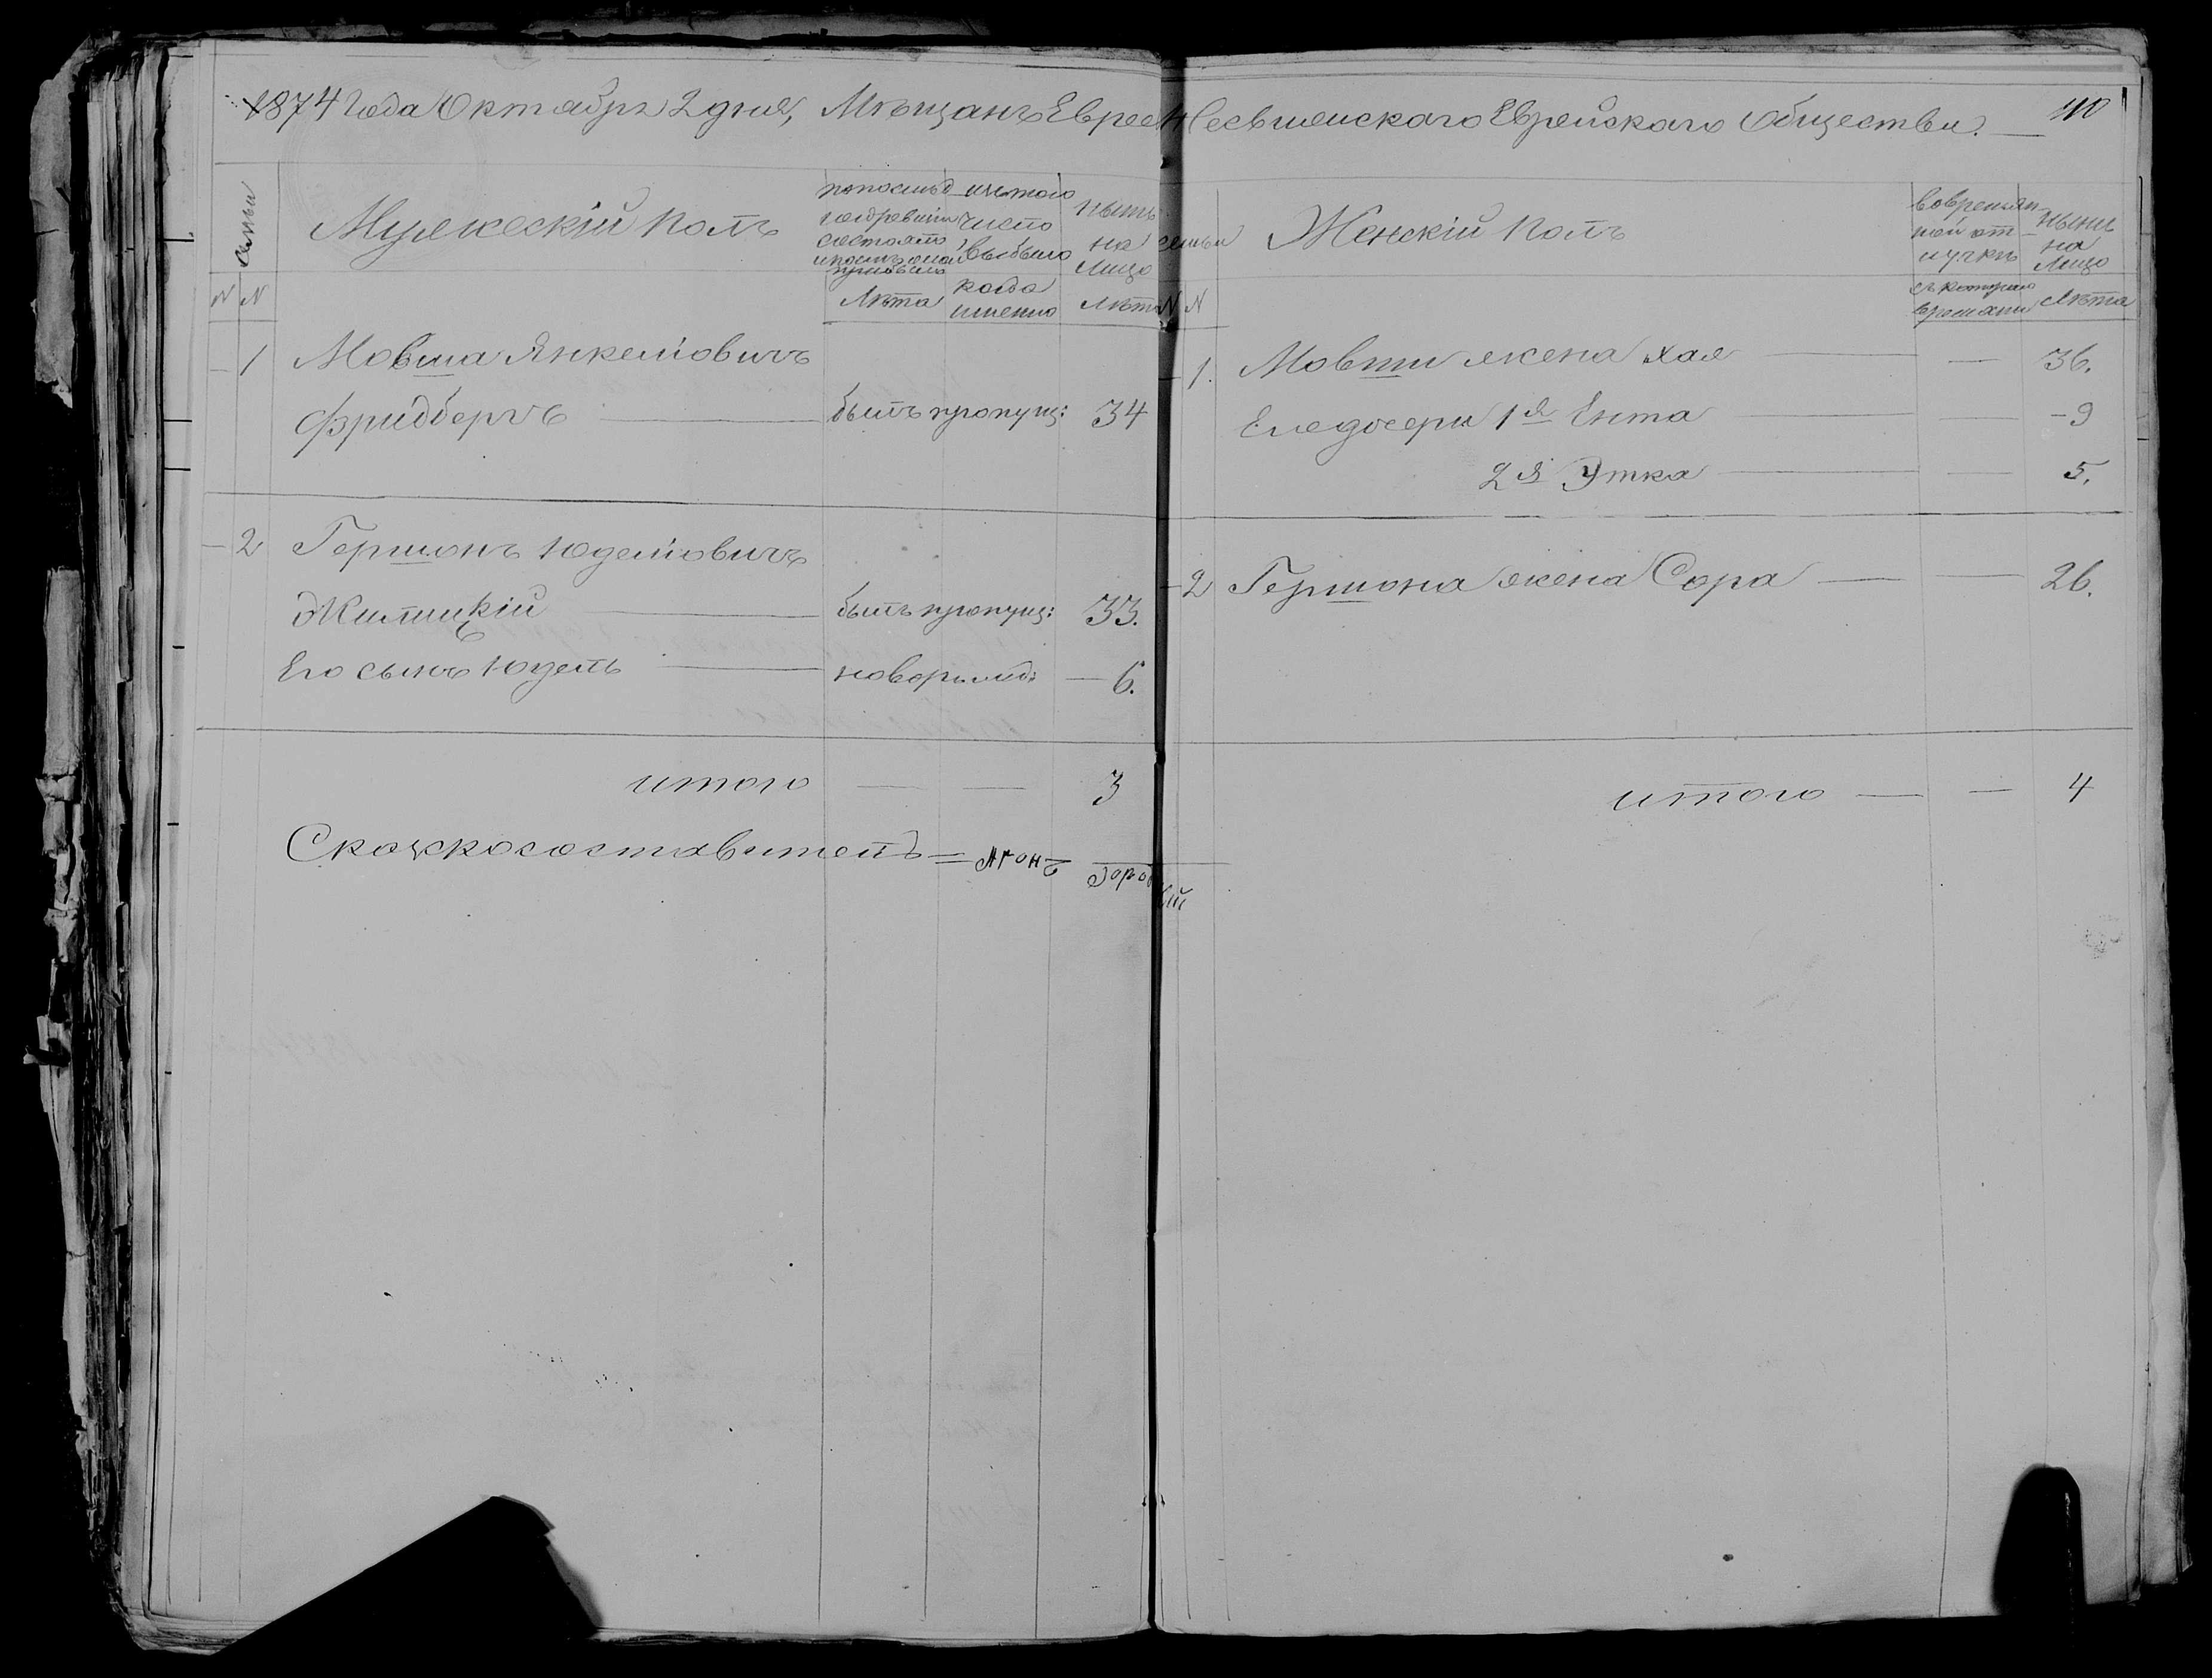 1874 Года Октября 2 дня, Мѣщанъ Евреевъ Несвижскаго Еврейскаго Общества. 110
Семьи
Мужескій полъ
по послѣд
ревизіи
состояло
и послѣ оной
прибыло
изъ того
число
выбыло
нынѣ
на
лицо
N N
Лѣта
когда
именно
Лѣта
1 Мовша Янкелiовичъ
Фридбергъ былъ пропущ: 34
2 Гершонъ Юделiовичъ
былъ пропущ: 33.
Его сынъ Юдель новорожд: 6.
итого 3
семьи
Женскій полъ
во времян
ной от
лучкѣ
нынѣ
на
лицо
N N
съ котораго
времяни
Лѣта
1. Мовши жена Хая 36.
Его дочери 1я Ента 9
2я Этка 5.
2 Гершона жена Сора 26.
итого 4